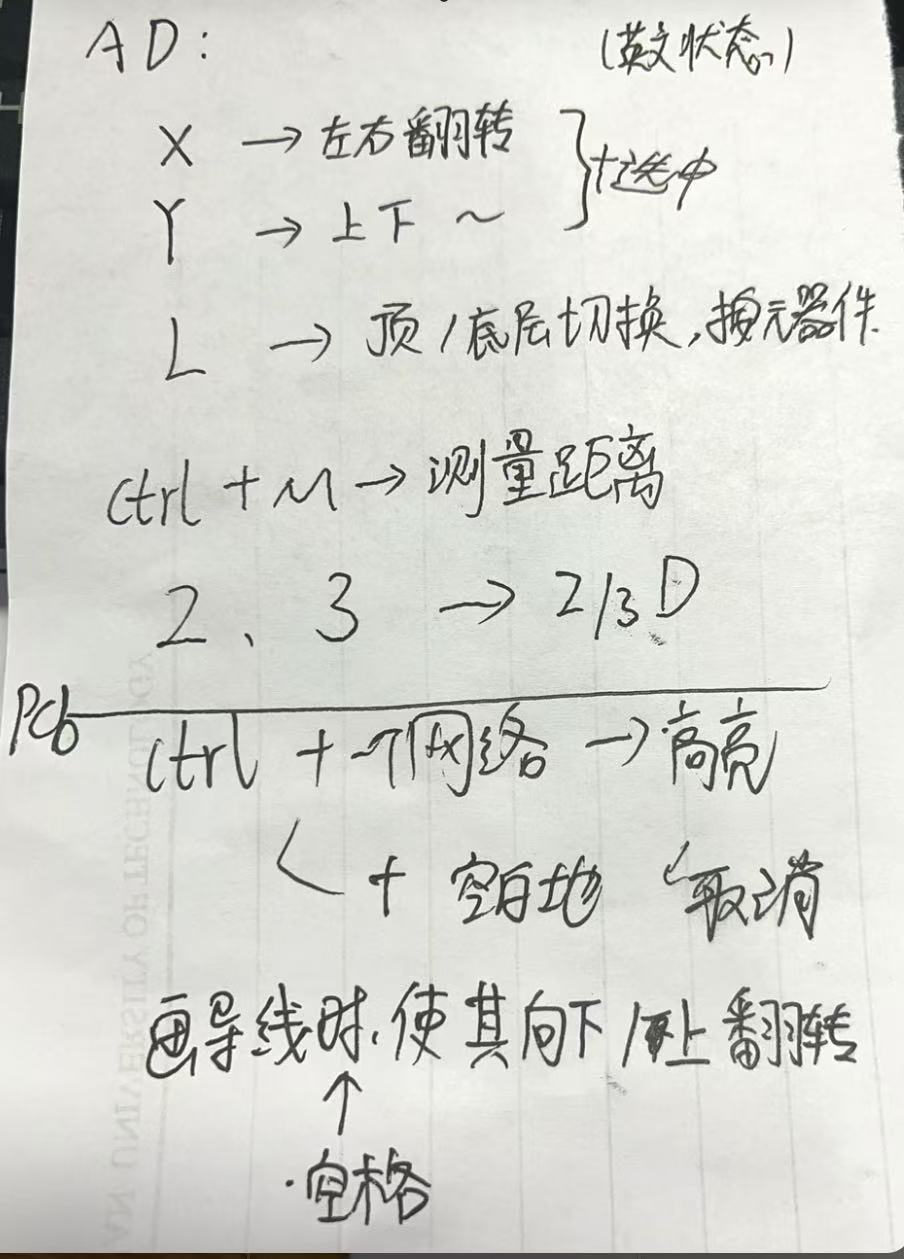 AD: (英文状态)
X → 左右翻转
Y → 上下 ~ } +选中
L → 顶/底层切换,按元器件
ctrl + M → 测量距离
2、3 → 2/3D
PCb
ctrl + 一个网络 → 高亮
+ 空白地 取消
画导线时,使其向下/上翻转
↑
空格
AN UNIVERSITY OF TECHNOLOGY